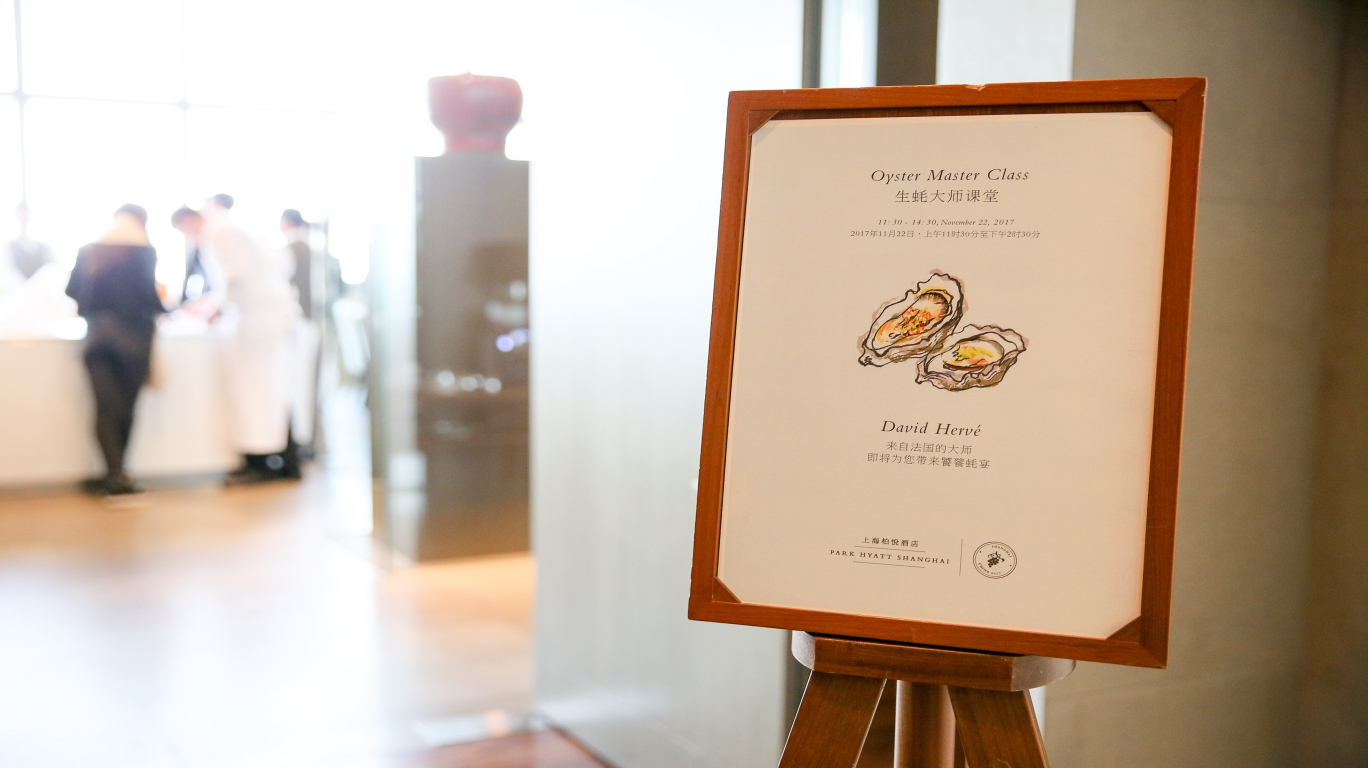 Oyster Master Class
生蚝大师课堂
11: 30 - 14: 30, November 22, 2017
2017年11月22日・上午11时30分至下午2时30分
David Hervé
来自法国的大师
即将为您带来饕餮蚝宴
上海柏悦酒店
PARK HYATT SHANGHAI
SHANGHAI